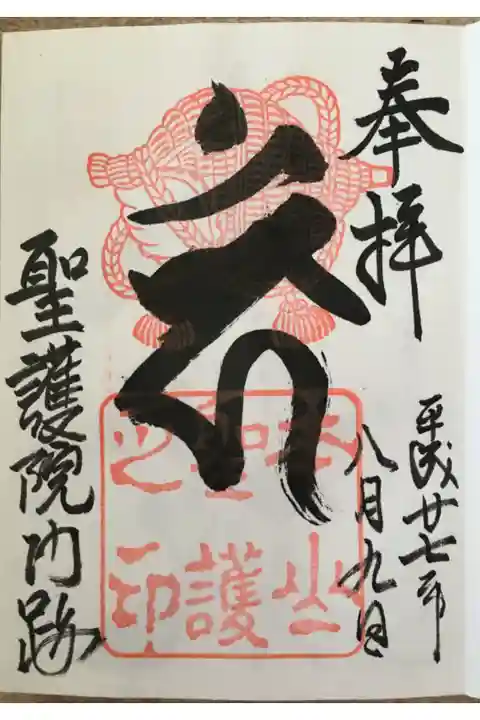 奉拝
平成廿七年
八月九日
𑖮𑖳𑖽
聖護院門跡
本山
聖護
之印